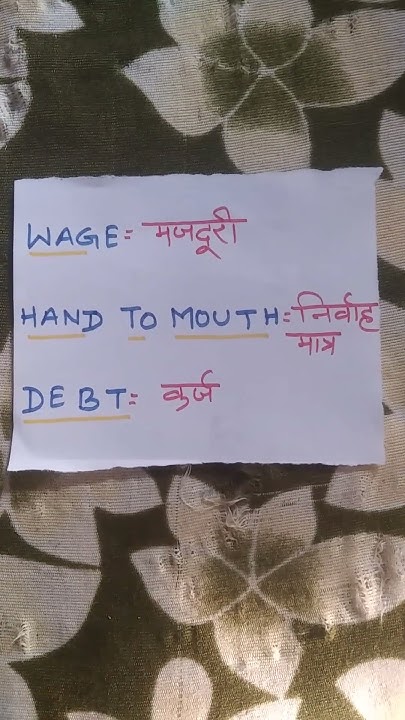 WAGE= मजदूरी
HAND TO MOUTH= निर्वाह
मात्र
DEBT= कर्ज